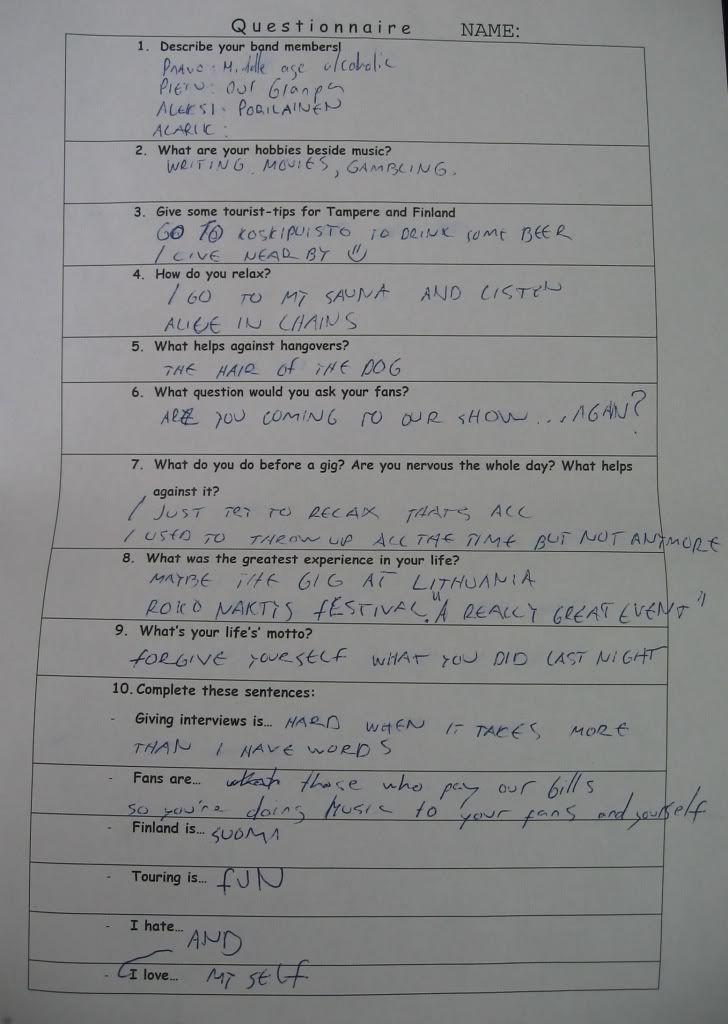 Questionnaire NAME:
1. Describe your band members!
Middle age alcoholic
OUR Granpa
ALEKSI: PORILAINEN
ALARIC:
2. What are your hobbies beside music?
WRITING. MOVIES, GAMBLING.
3. Give some tourist-tips for Tampere and Finland
GO TO KOSKIPUISTO TO DRINK SOME BEER
I LIVE NEAR BY
4. How do you relax?
I GO TO MY SAUNA AND LISTEN
ALICE IN CHAINS
5. What helps against hangovers?
THE HAIR Of THE DOG
6. What question would you ask your fans?
ARE YOU COMING TO OUR SHOW... AGAN?
7. What do you do before a gig? Are you nervous the whole day? What helps
against it?
I JUST TRY TO RELAX THATS ALL
I USED TO THROW UP ALL THE TIME BUT NOT ANYMORE
8. What was the greatest experience in your life?
MAYBE THE GIG AT LITHUANIA
ROKO NAKTYS fESTIVAL. "A REALLY GREAT EVENT"
9. What's your life's' motto?
fORGIVE YOURSELF WHAT YOU DID LAST NIGHT
10. Complete these sentences:
- Giving interviews is... HARD WHEN IT TAKES MORE
THAN I HAVE WORDS
- Fans are... those who pay our bills
so you're doing Music to your fans and yourself
- Finland is... SUOMI
- Touring is... fUN
- I hate...
AND
- I love... MY SELF